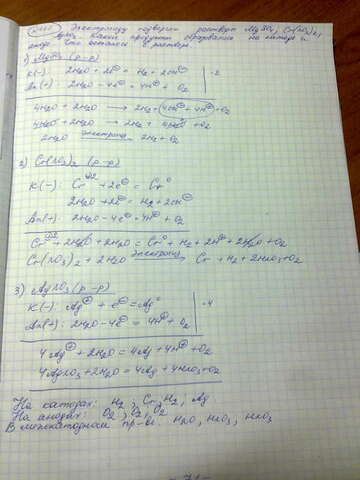 Электролизу подвергли растворы MgSO₄, Cr(NO₃)₂,
AgNO₃. Какие продукты образовались на катоде и
аноде. Что осталось в растворе.
1) MgSO₄ (р-р)
K(-): 2H₂O + 2ē = H₂ + 2OH⁻ | ·2
An(+): 2H₂O - 4ē = 4H⁺ + O₂
4H₂O + 2H₂O → 2H₂ + 4OH⁻ + 4H⁺ + O₂
4H₂O + 2H₂O → 2H₂ + 4H₂O + O₂
2H₂O электролиз → 2H₂ + O₂
2) Cr(NO₃)₂ (р-р)
K(-): Cr⁺² + 2ē = Cr⁰
2H₂O + 2ē = H₂ + 2OH⁻
An(+): 2H₂O - 4ē = 4H⁺ + O₂
Cr⁺² + 2H₂O + 2H₂O = Cr⁰ + H₂ + 2H⁺ + 2H₂O + O₂
Cr(NO₃)₂ + 2H₂O электролиз → Cr + H₂ + 2HNO₃ + O₂
3) AgNO₃ (р-р)
K(-): Ag⁺ + ē = Ag⁰ | ·4
An(+): 2H₂O - 4ē = 4H⁺ + O₂
4Ag⁺ + 2H₂O = 4Ag + 4H⁺ + O₂
4AgNO₃ + 2H₂O = 4Ag + 4HNO₃ + O₂
На катодах: H₂, Cr, H₂, Ag
На анодах: O₂, O₂, O₂
В межкатодном пр-ве: H₂O, HNO₃, HNO₃